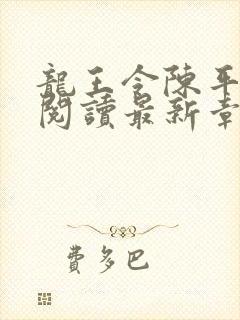 龍王令陳平
閱讀最新章
費多巴